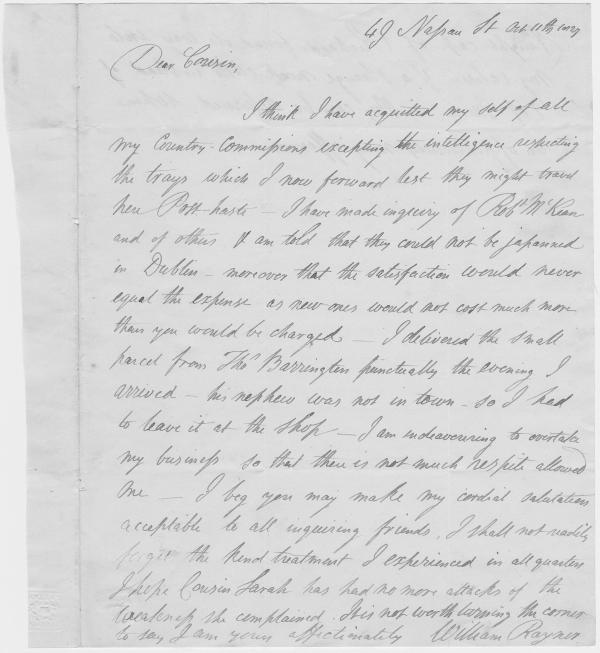 49 Nassau St Oct. 11th 1827
Dear Cousin,
I think I have acquitted my self of all
my Country-Commissions excepting the intelligence respecting
the trays which I now forward lest they might travel
here Post haste — I have made inquiry of Robt. McKean
and of others & am told that they could not be japanned
in Dublin — moreover that the satisfaction would never
equal the expense as new ones would not cost much more
than you would be charged — I delivered the small
parcel from Thos Barrington punctually the evening I
arrived — his nephew was not in town — so I had
to leave it at the shop — I am endeavouring to overtake
my business so that there is not much respite allowed
me — I beg you may make my cordial salutations
acceptable to all inquiring friends, I shall not readily
forget the kind treatment I experienced in all quarters
I hope Cousin Sarah has had no more attacks of the
weakness she complained. It is not worth turning the corner
to say I am yours affectionately William Rayner